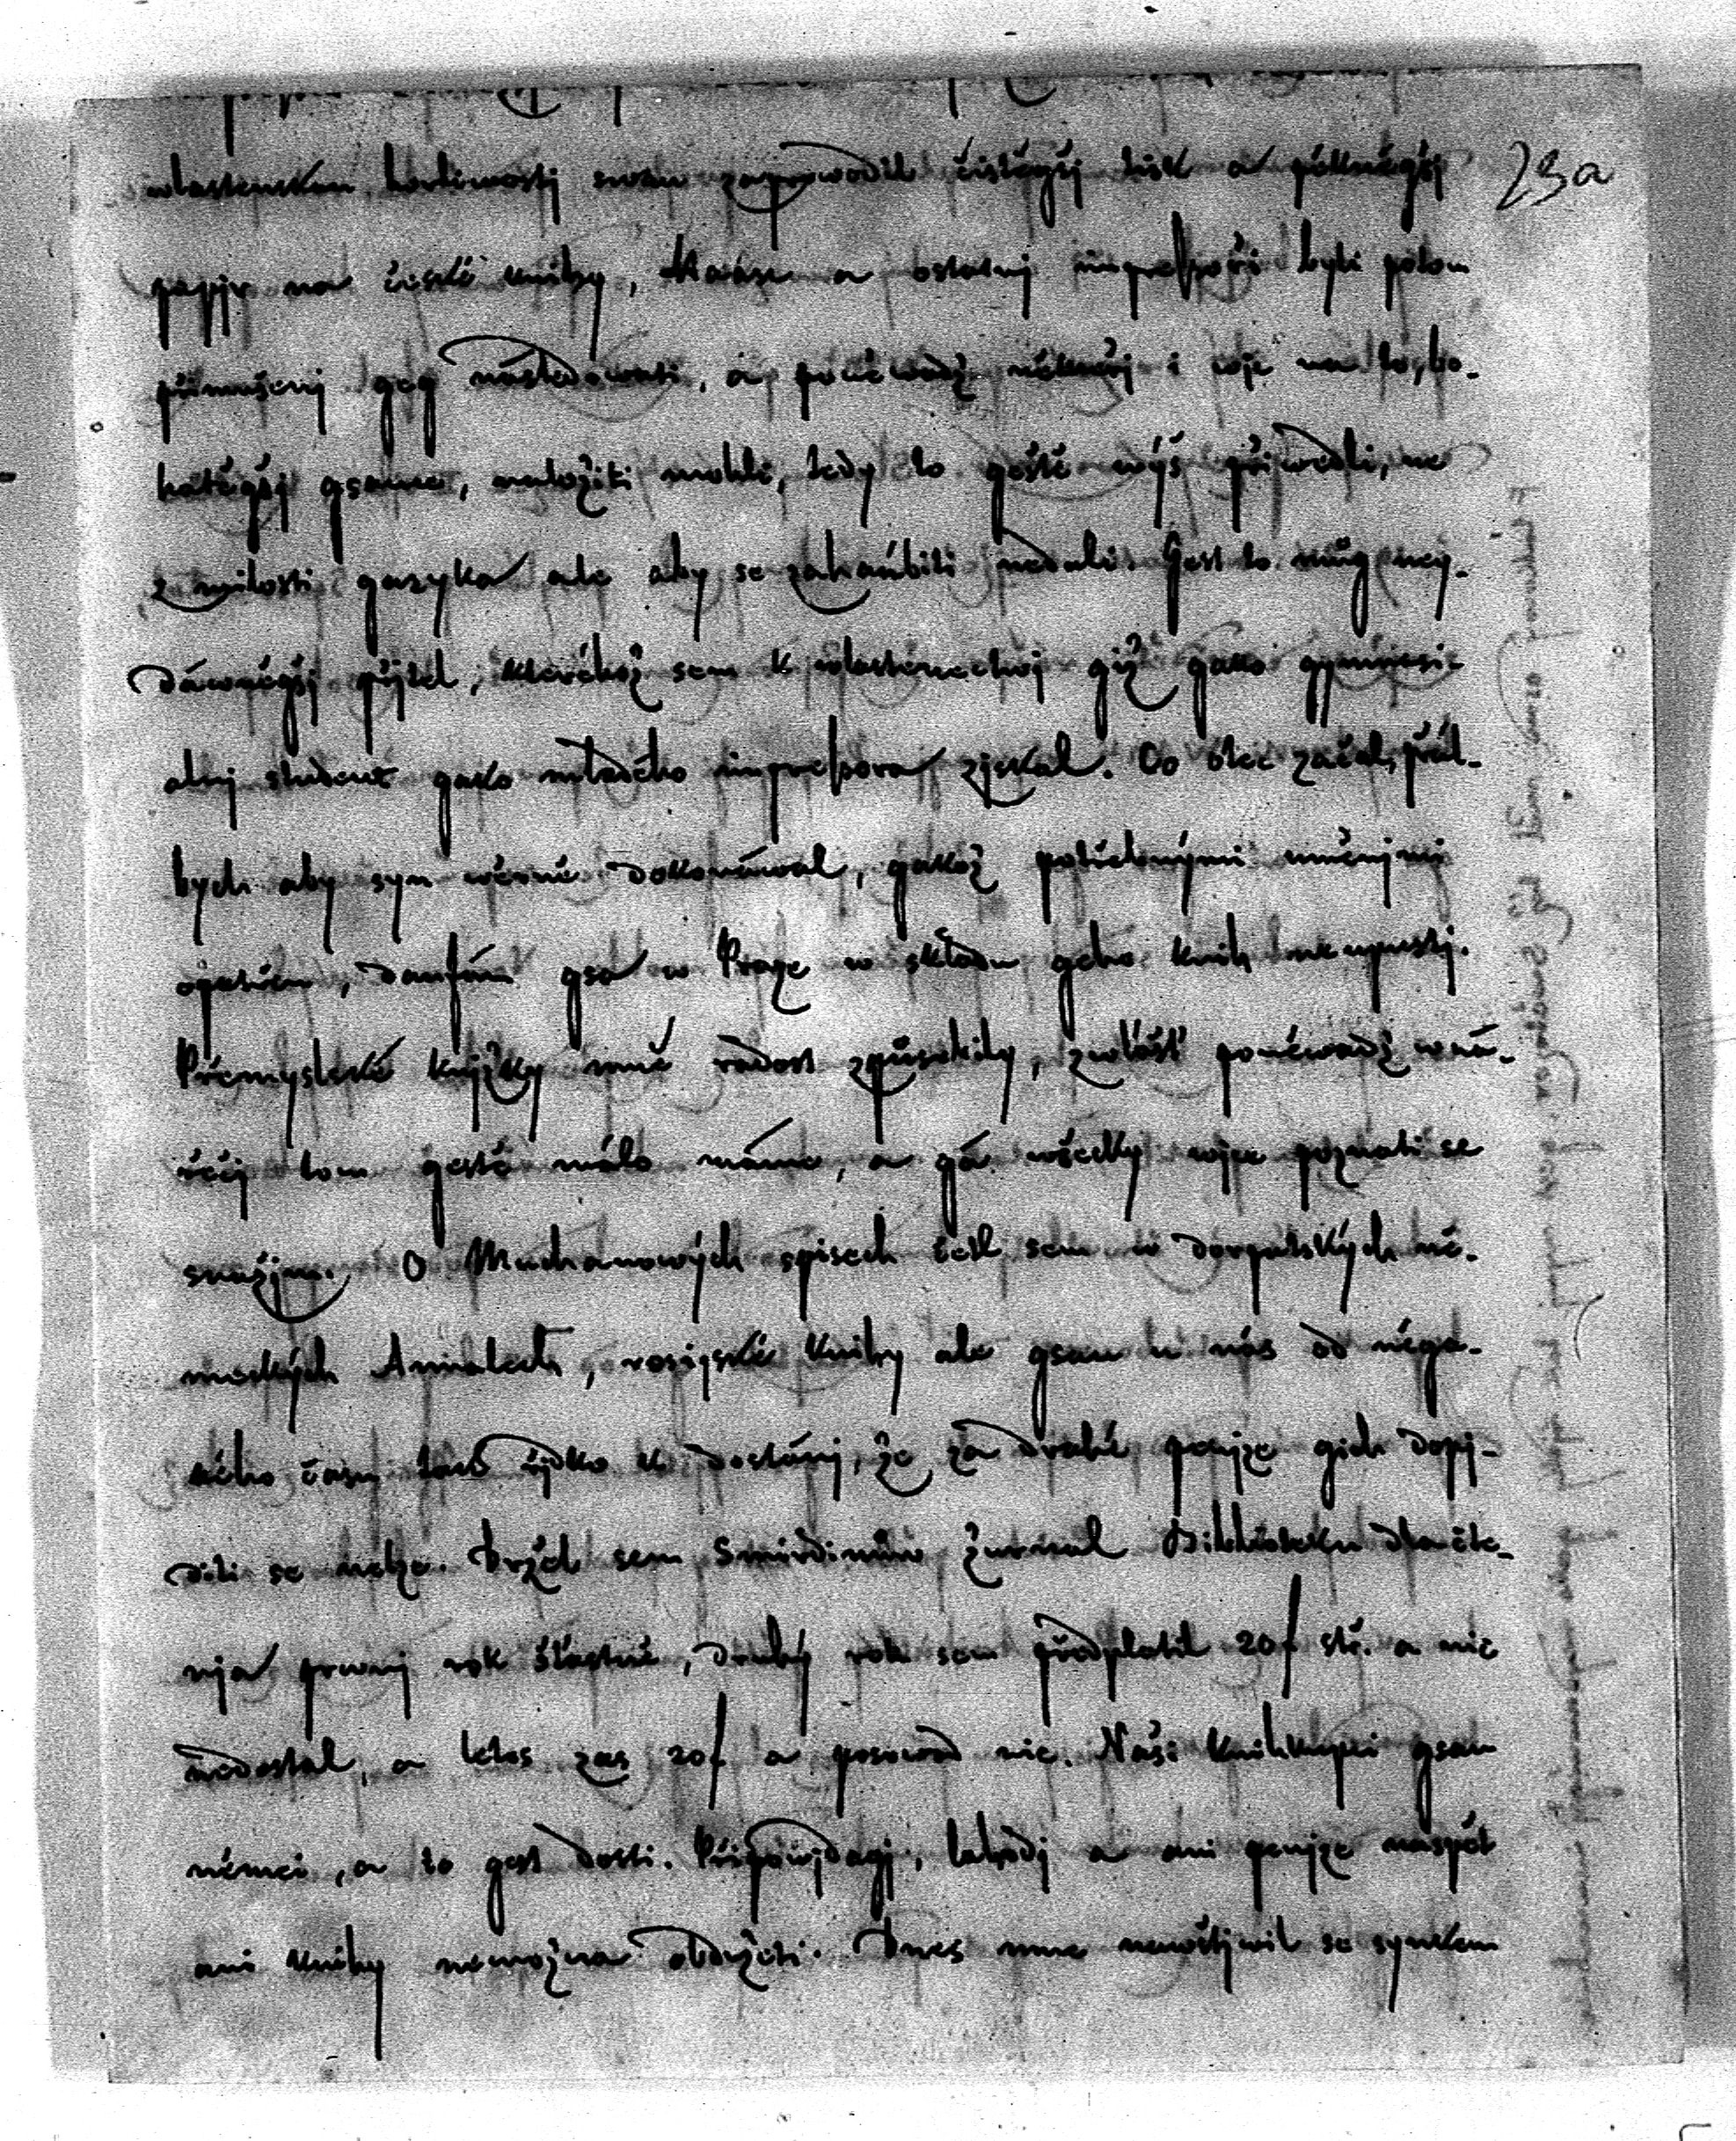 23a
wlastenskau horliwostj swau zaprowodil čistěgšj tisk a pěkněgšj
papjr na české knihy, Haáse a ostatnj impressoři byli potom
přinušenj geg následowati, a poněwadž někteřj i wjc na to, bo-
hatěgšj gsauce, naložiti mohli, tedy to geště wýš přiwedli, ne
z milosti gazyka ale aby se zahaňbiti nedali. Gest to můg ney-
dáwněgšj přjtel, kteréhož sem k wlastenectwj giž gako gymnasi-
alnj student gako mladého impressora zjskal. Co otec začal, přál-
bych aby syn wěrně dokonáwal, gakož potřebnými uměnjmi
opatřen, daufám gsa w Praze w skladu geho knih neupustj.
Přemyslské knjžky mně radost způsobily, zwlášť poněwadž w ná-
řečj tom geště málo máme, a gá wšecky wjce poznati se
snažjm. O Muchanowých spisech četl sem w dorpatských ně-
meckých Annalech, rosigské knihy ale gsau u nás od něga-
kého času tak řjdko k dostánj, že za drahé penjze gich dopj-
diti se nelze. Držel sem Smirdinůw žurnal Biblioteku dla čte-
nja prwnj rok šťastně, druhý rok sem předplatil 20f stř. a nic
nedostal, a letos zas 20f a posawad nic. Naši knihkupci gsau
němci, a to gest dosti. Připowjdagj, lahodj a ani penjze naspět
ani knihy nemožna obdržeti. Dnes mne nawštjwil se synkem